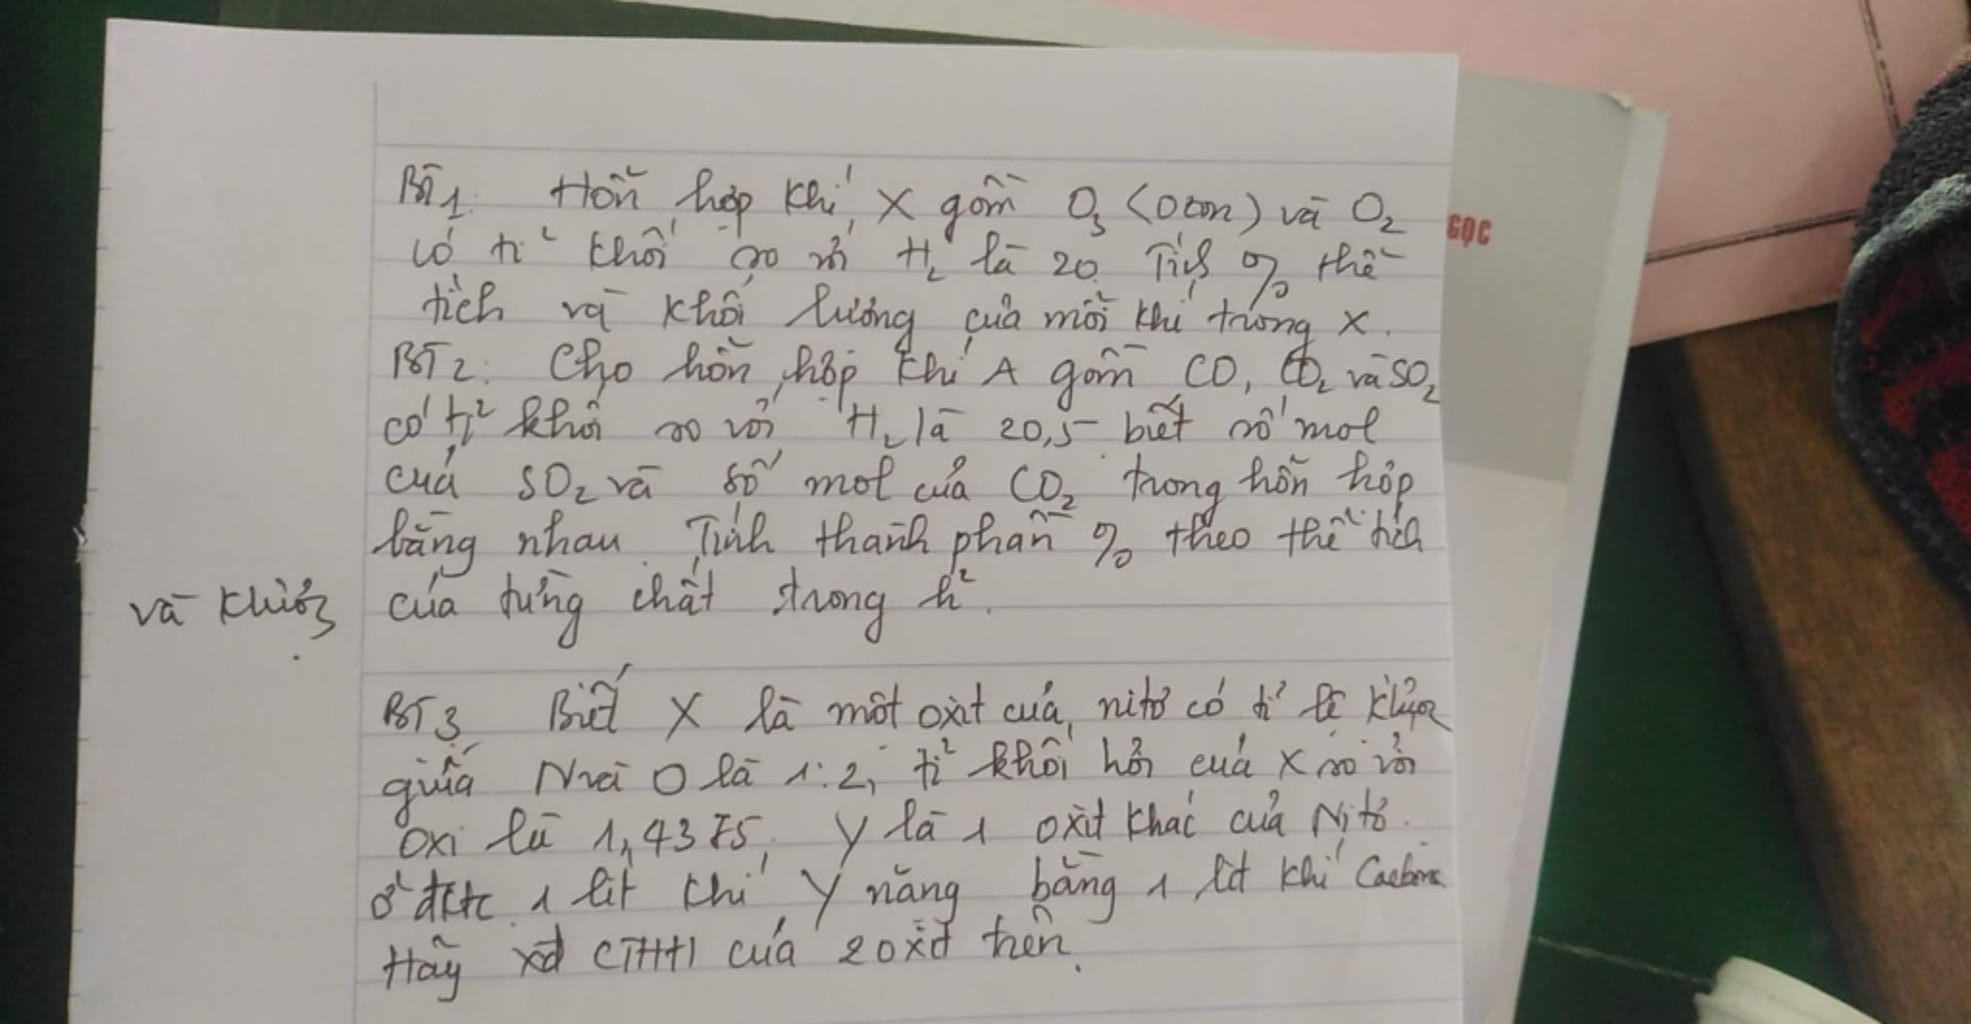 BT1. Hỗn hợp khí X gồm O3 (ozon) và O2
GỌC
có tỉ khối so với H2 là 20. Tính % thể
tích và khối lượng của mỗi khí trong X.
BT2: Cho hỗn hợp khí A gồm CO, CO2 và SO2
có tỉ khối so với H2 là 20,5 biết số mol
của SO2 và số mol của CO2 trong hỗn hợp
bằng nhau. Tính thành phần % theo thể tích
và khlượng của từng chất trong h2.
BT3 Biết X là một oxit của nitơ có tỉ lệ klượng
giữa N và O là 1:2, tỉ khối hơi của X so với
oxi là 1,4375, Y là 1 oxit khác của Nitơ.
ở đktc 1 lít khí Y nặng bằng 1 lít khí
Hãy xđ CTHH của 2 oxit trên.